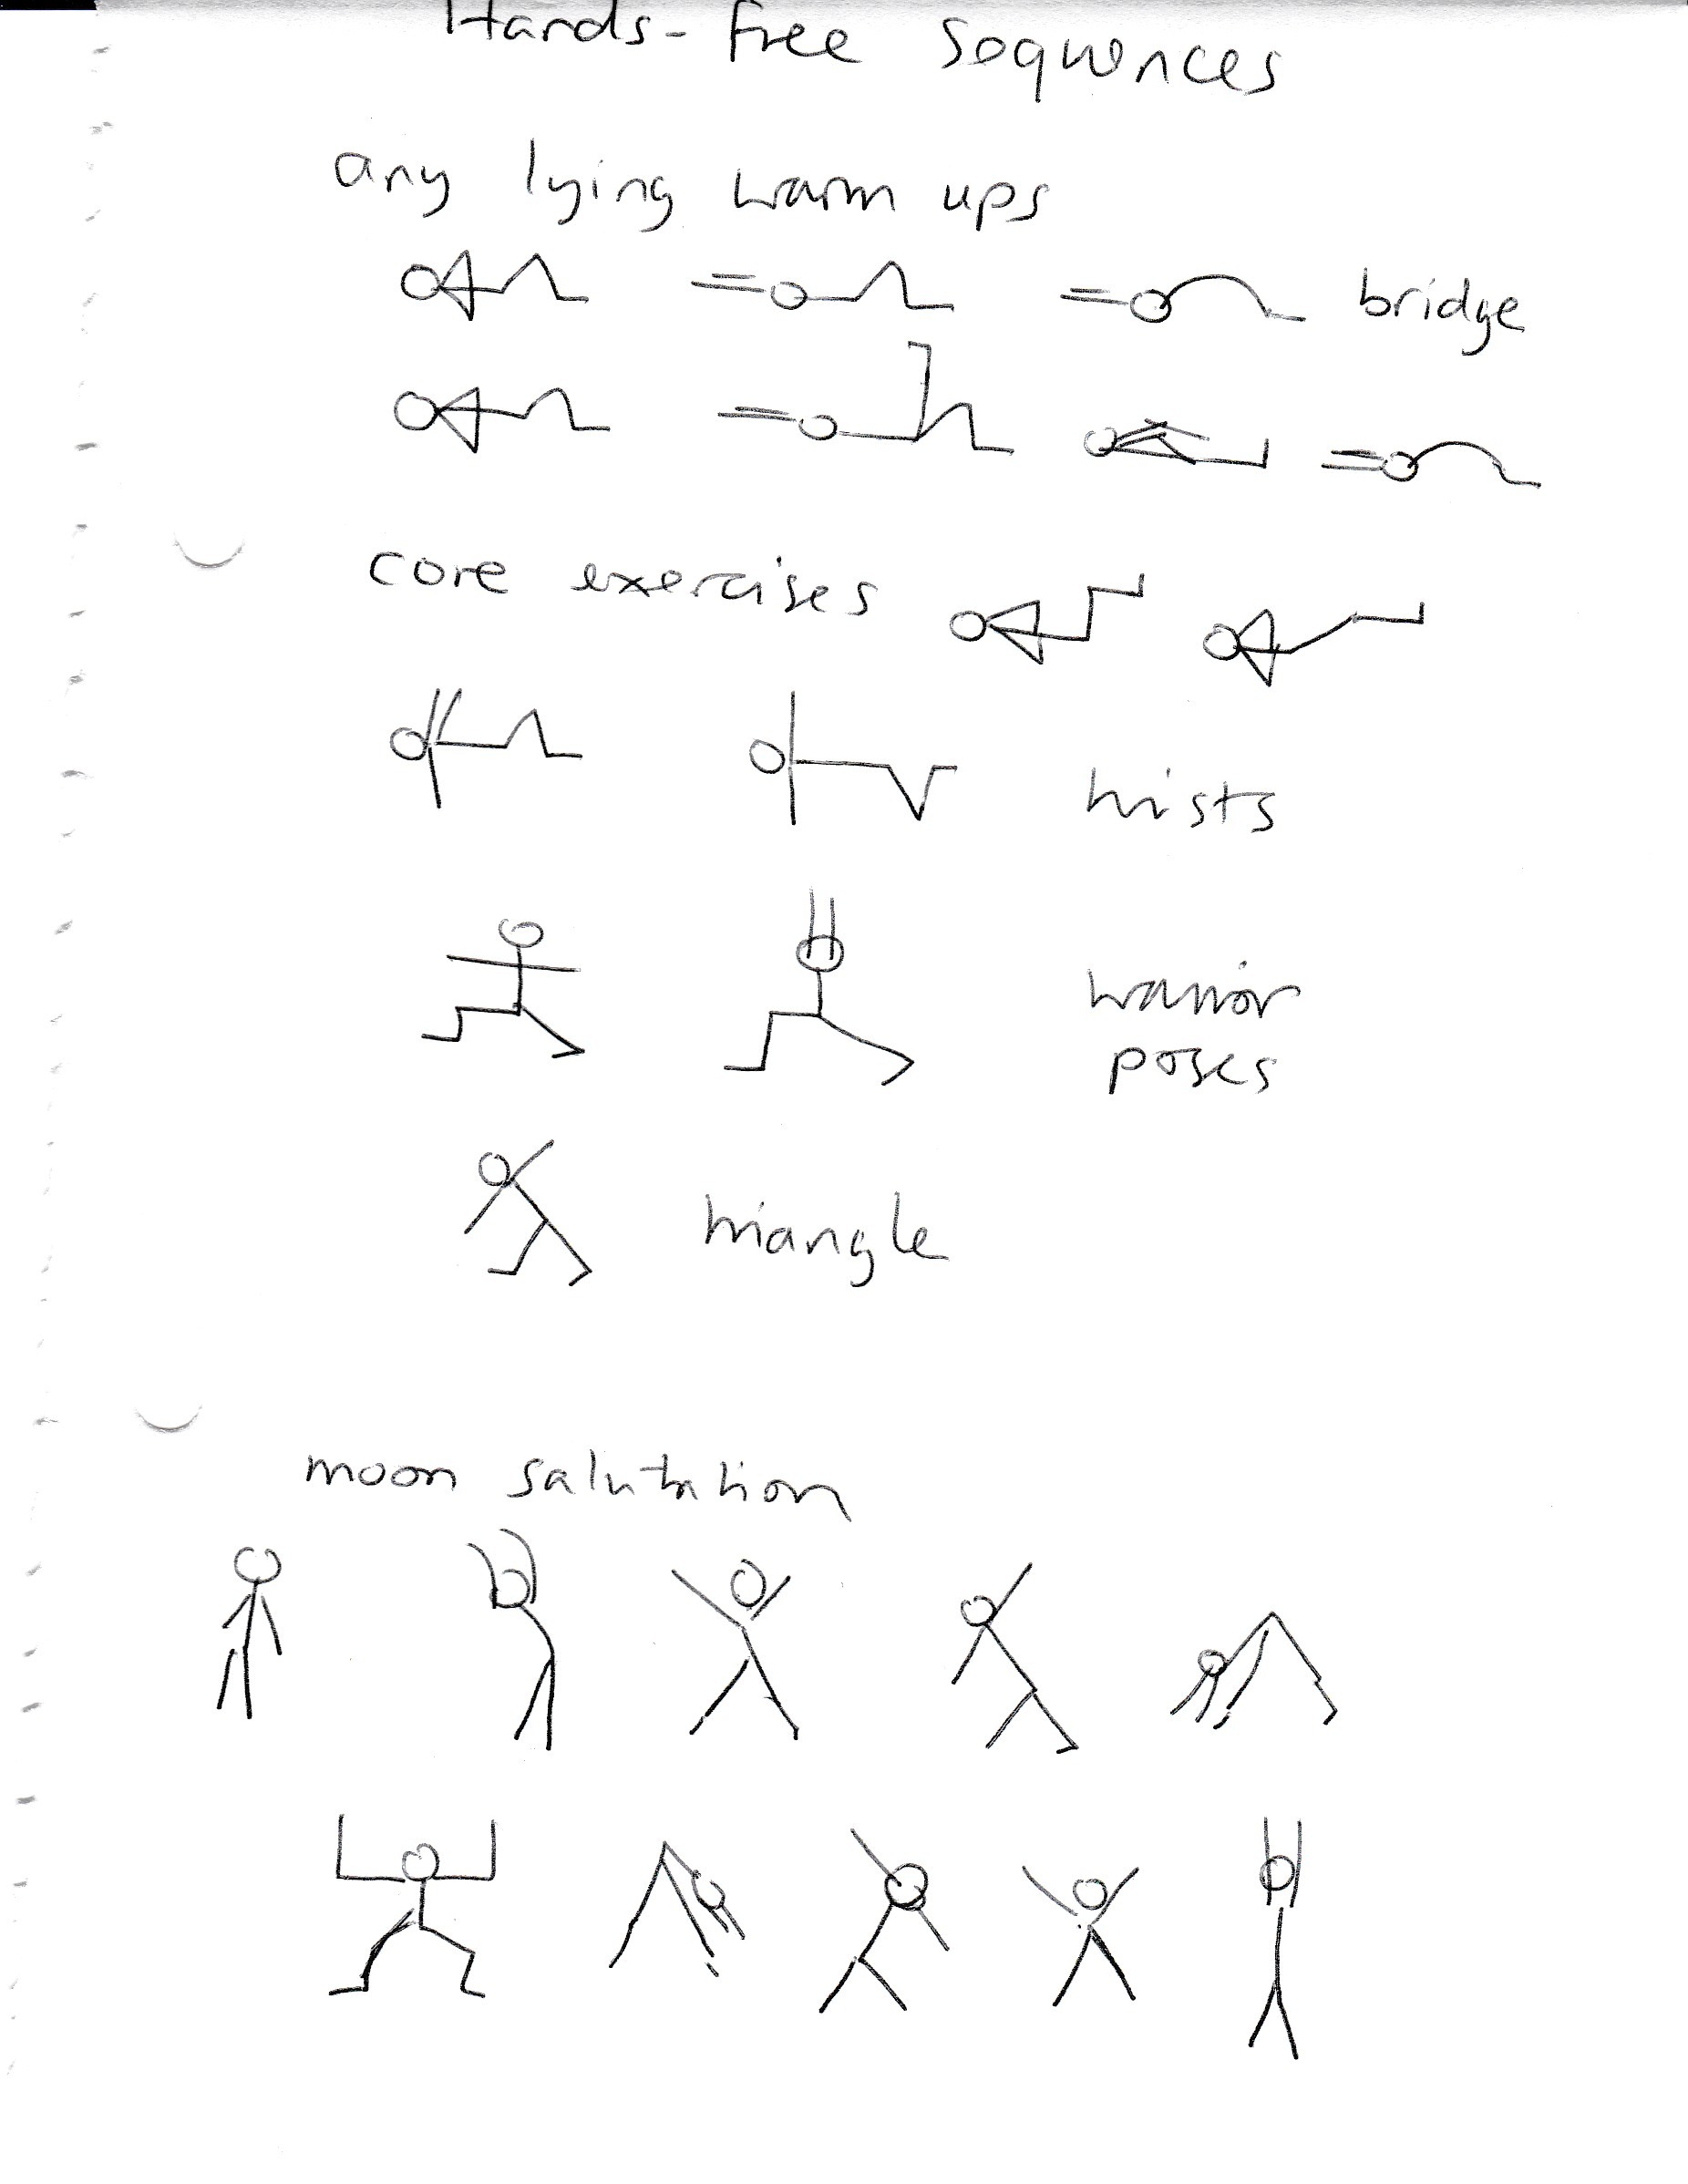 Hands-Free Sequences
any lying warm ups
bridge
core exercises
twists
warrior
poses
triangle
moon salutation